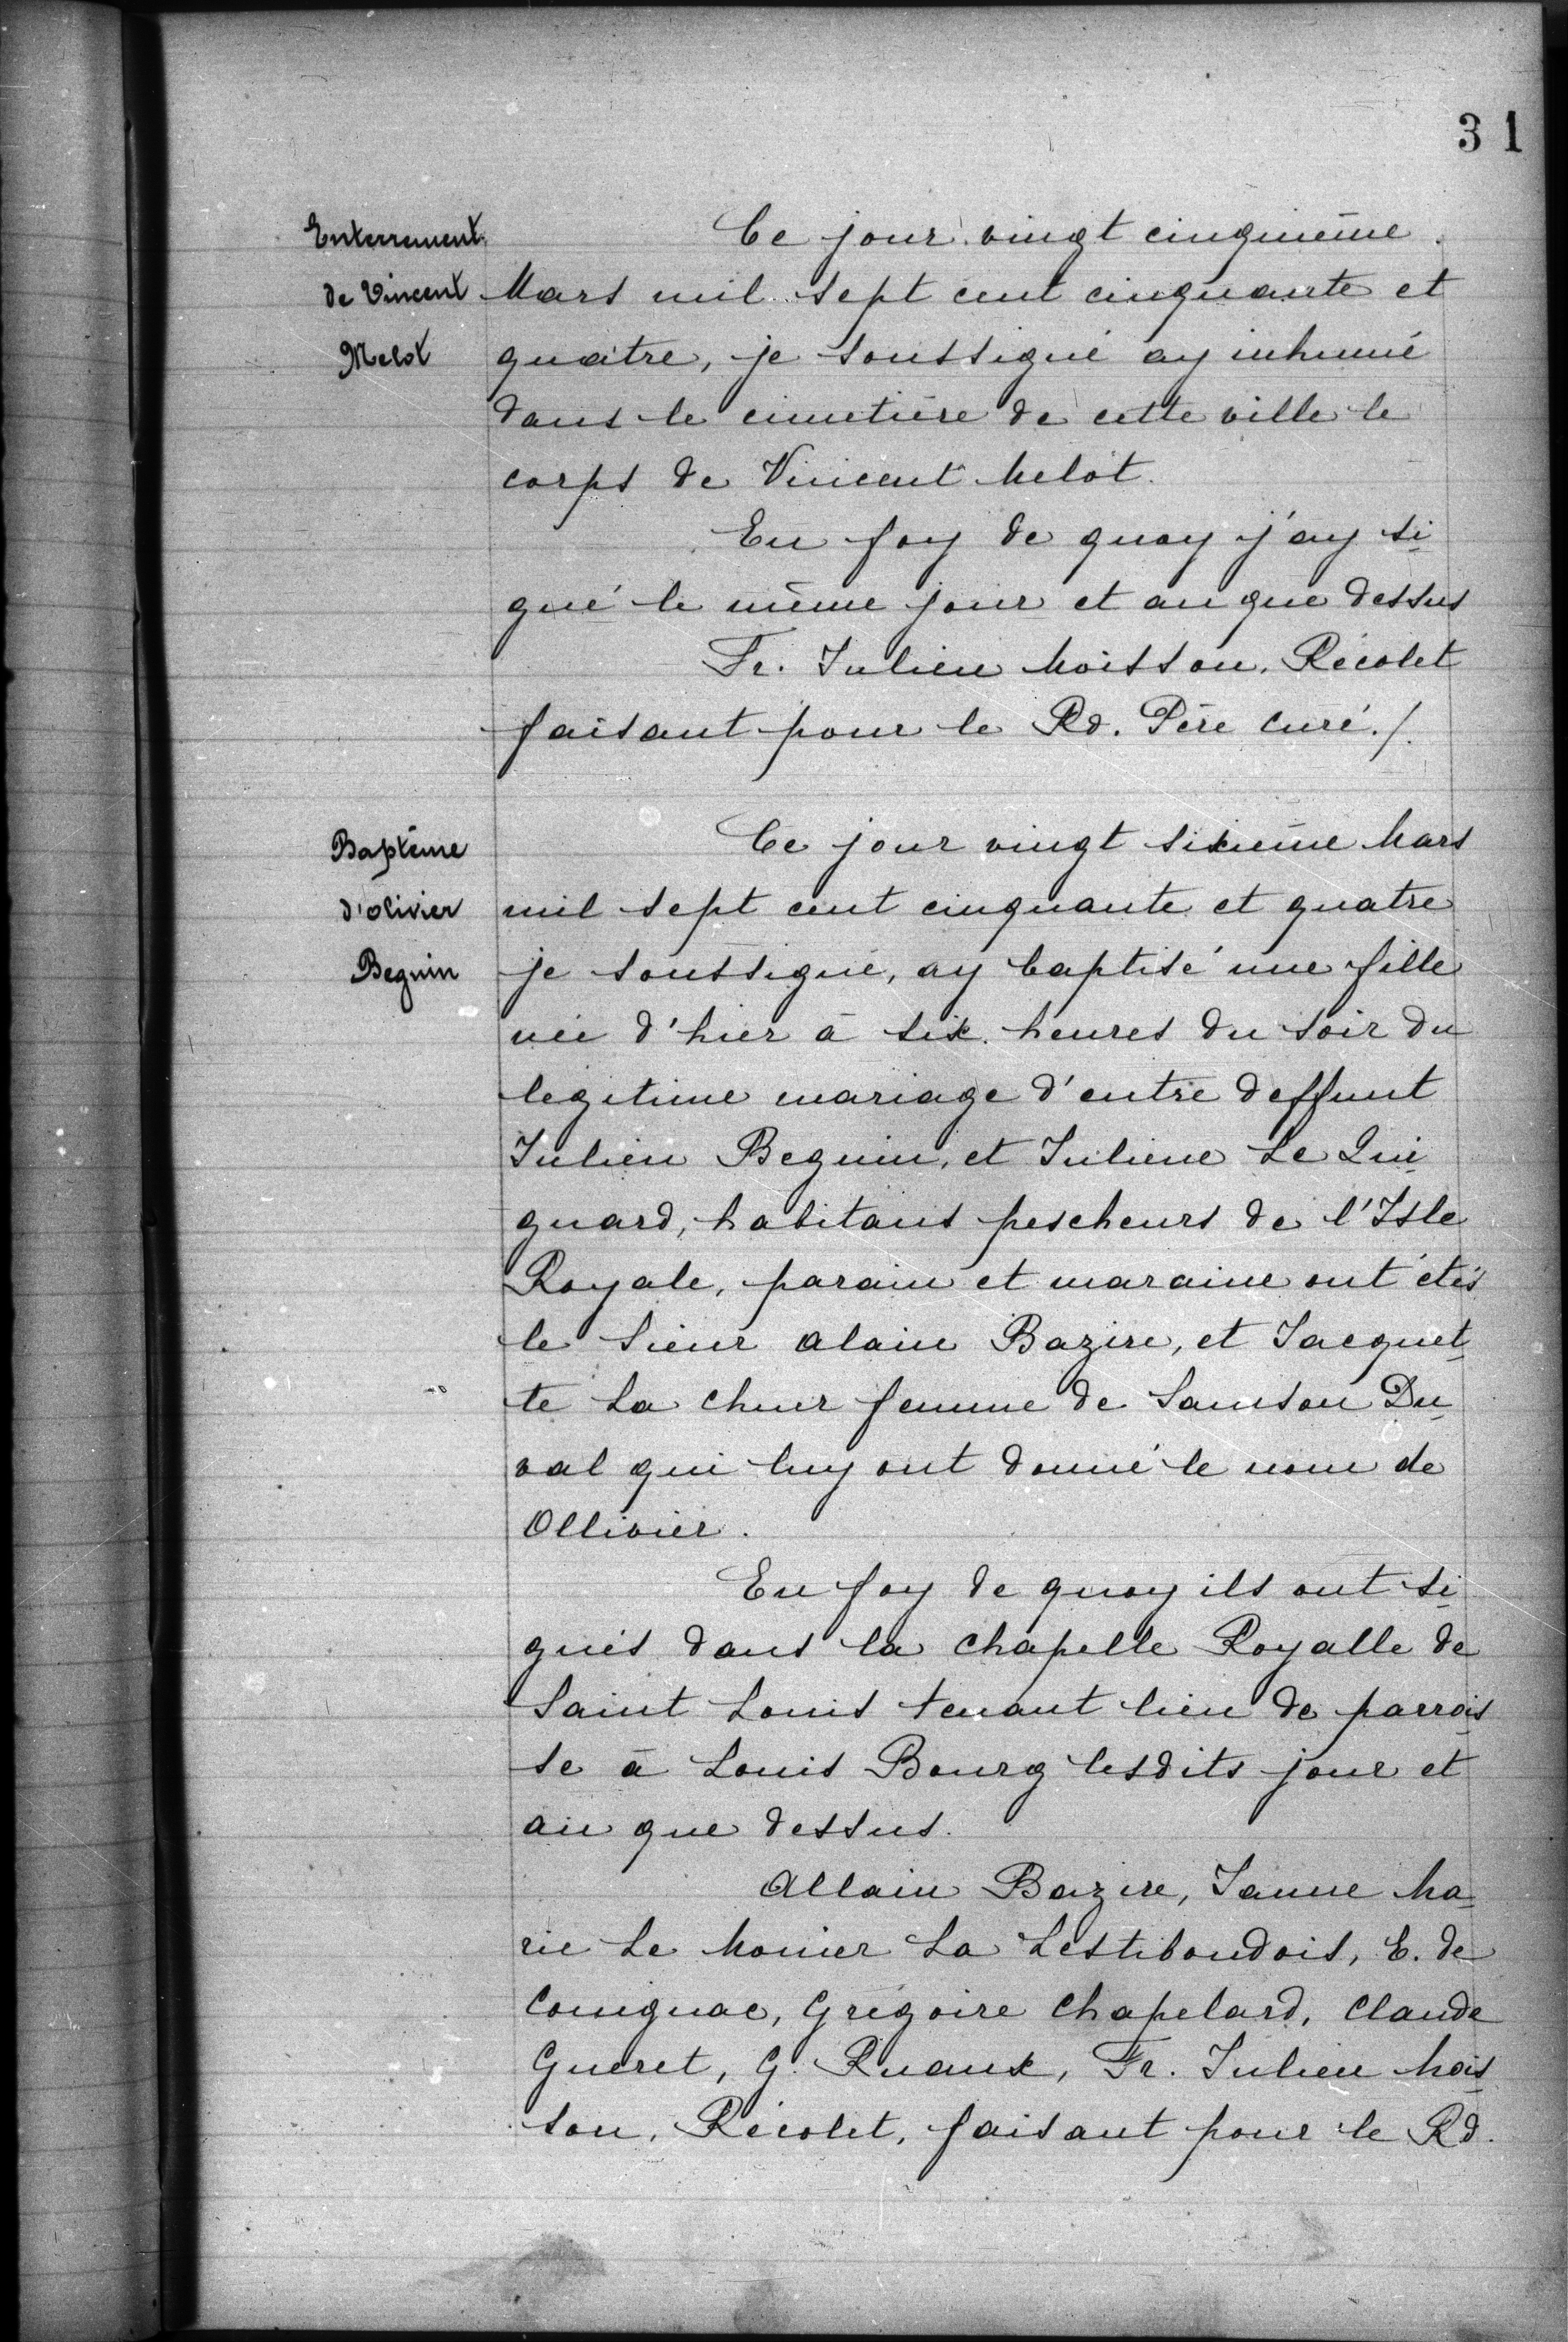 31
Enterrement
de Vincent
Melot
Ce jour vingt cinquième
Mars mil sept cent cinquante et
quatre, je soussigné ay inhumé
dans le cimetière de cette ville le
corps de Vincent Melot.
En foy de quoy j'ay si
gné le même jour et an que dessus
Fr. Julien Moisson, Récolet
faisant pour le Rd. Père curé./.
Baptême
d'olivier
Beguin
Ce jour vingt sixième Mars
mil sept cent cinquante et quatre
je soussigné, ay baptisé une fille
née d'hier à six heures du soir du
legitime mariage d'entre deffunt
Julien Beguin, et Juliene Le Qui
guard, habitans pescheurs de l'Isle
Royale, parain et maraine ont étés
le Sieur alain Bazire, et Jacquet
te La chuer femme de Samson Du
val qui luy ont donné le nom de
Ollivier.
En foy de quoy ils ont si
gnés dans la chapelle Royalle de
Saint Louis tenant lieu de parrois
se à Louis Bourg lesdits jour et
an que dessus.
Allain Bazire, Janne Ma
rie Le Monier La Lestiboudois, E. de
Couignac, Grégoire Chapelard, Claude
Gueret, G. Ruaux, Fr. Julien Mois
son, Récolet, faisant pour le Rd.